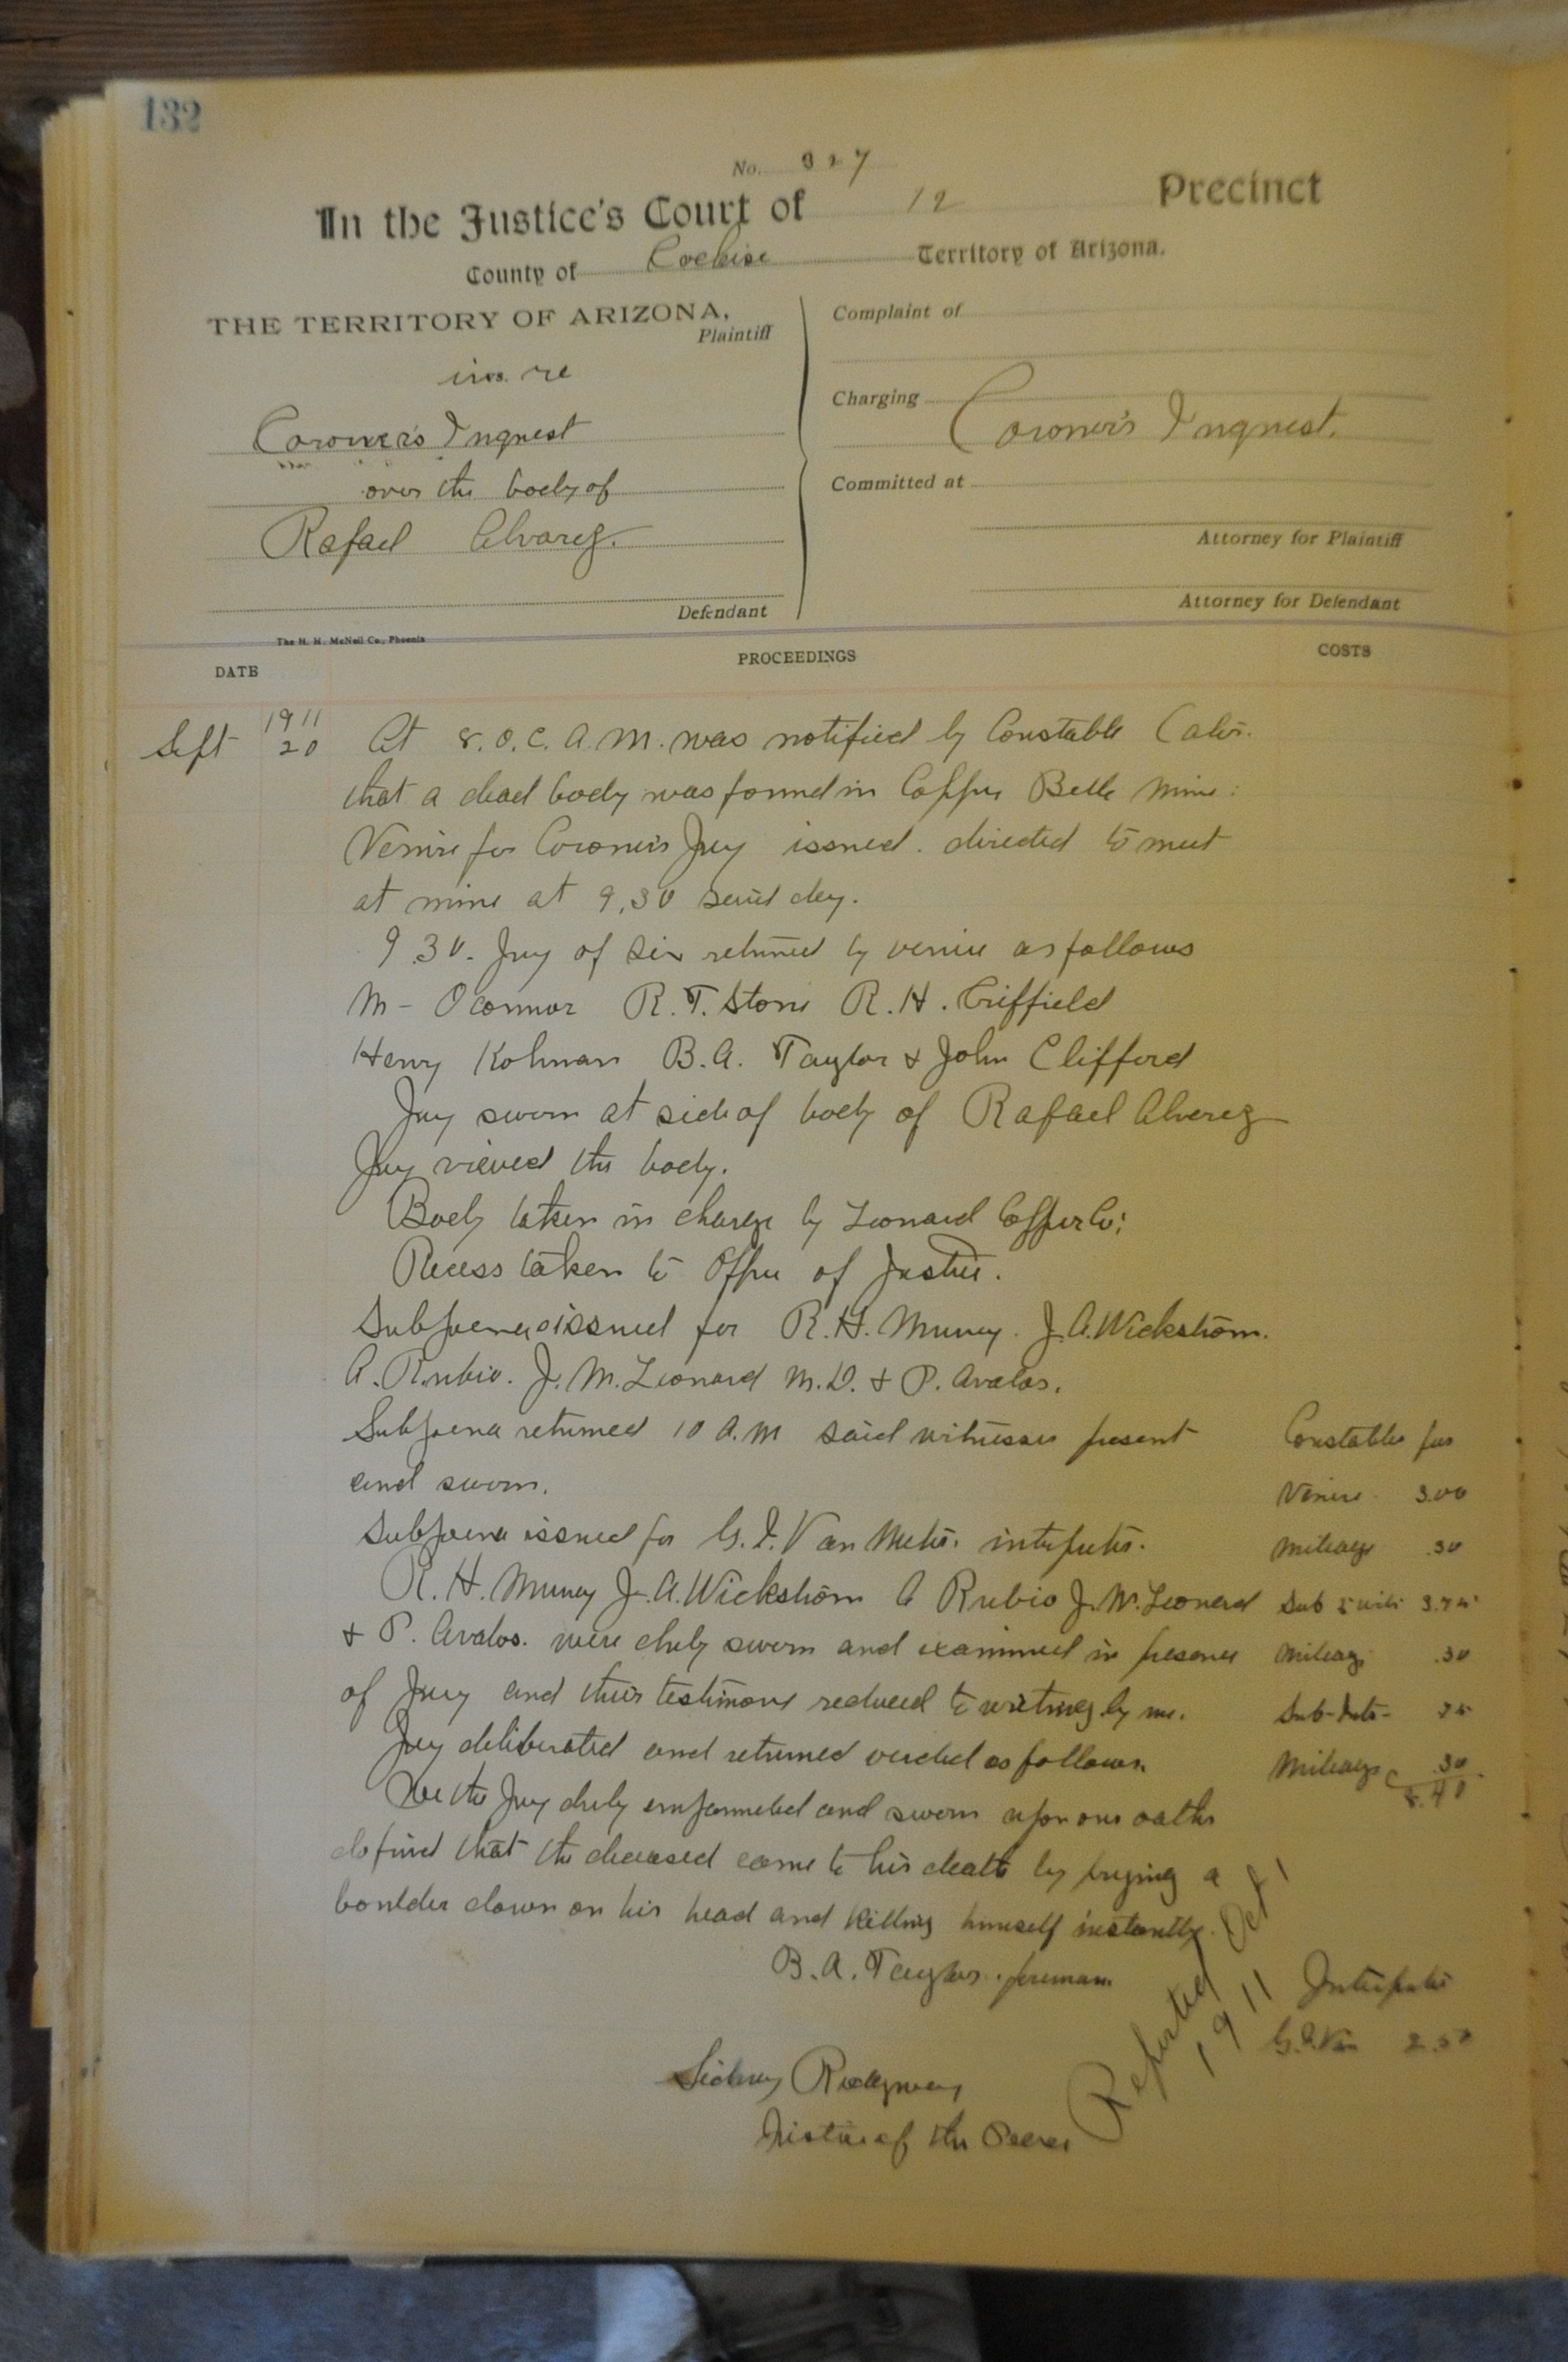 132
No. 327
In the Justice's Court of 12 Precinct
County of Cochise Territory of Arizona.
THE TERRITORY OF ARIZONA,
Plaintiff
in re
Coroner's Inquest
over the body of
Rafael Alvarez.
Defendant
Complaint of
Charging
Coroner's Inquest.
Committed at
Attorney for Plaintiff
Attorney for Defendant
The H. H. McNeil Co., Phoenix
DATE PROCEEDINGS COSTS
1911
Sept 20 At 8. O.C. A.M. was notified by Constable
that a dead body was found in Copper Belle Mine.
Venire for Coroner's Jury issued. directed to meet
at mine at 9.30 said day.
9.30. Jury of six returned by venire as follows
M- Oconnor R.T. Stone R.H. Criffield
Henry Kohman B.A. Taylor & John Clifford
Jury sworn at side of body of Rafael Alverez
Jury viewed the body.
Body taken in charge by Leonard Copper Co:
Recess taken to Office of Justice.
Subpoena issued for R.H. Muney. J.A. Wickstrom.
A. Rubio. J.M. Leonard M.D. & P. Avalos.
Subpoena returned 10 A.M said witnesses present
and sworn.
Subpoena issued for G.I. Van Meter. interpreter.
R.H. Muney J.A. Wickstrom A Rubio J.M. Leonard
& P. Avalos. were duly sworn and examined in presence
of Jury and their testimony reduced to writing by me.
Jury deliberated and returned verdict as follows.
We the Jury duly empannelled and sworn upon our oaths
do find that the deceased came to his death by prying a
boulder down on his head and killing himself instantly.
B.A. Taylor. foreman.
Sidney Ridgway
Justice of the Peace
Constables fees
Venire 3.00
Mileage .30
Sub 5 wits 3.75
Mileage .30
Sub-Inte- 75
Mileage .30
8.40
Reported Oct 1
1911
Interpreter
G.I. Van 2.50